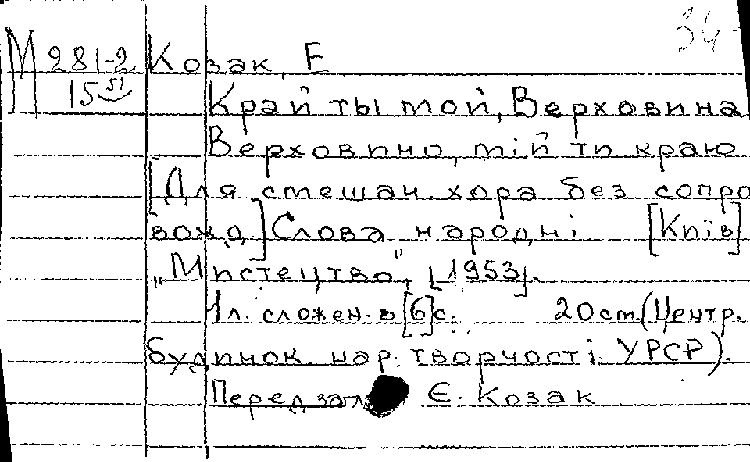 34
М 281-2 Козак, Е
15 51
Край ты мой, Верховина
Верховино, мій ти краю
[Для смешан. хора без сопро
вожд] Слова народні [Київ]
„Мистецтво", [1953].
1л. сложен. в [6] с. 20 cm. (Центр.
будинок нар. творчості УРСР).
Перед заг Є. Козак